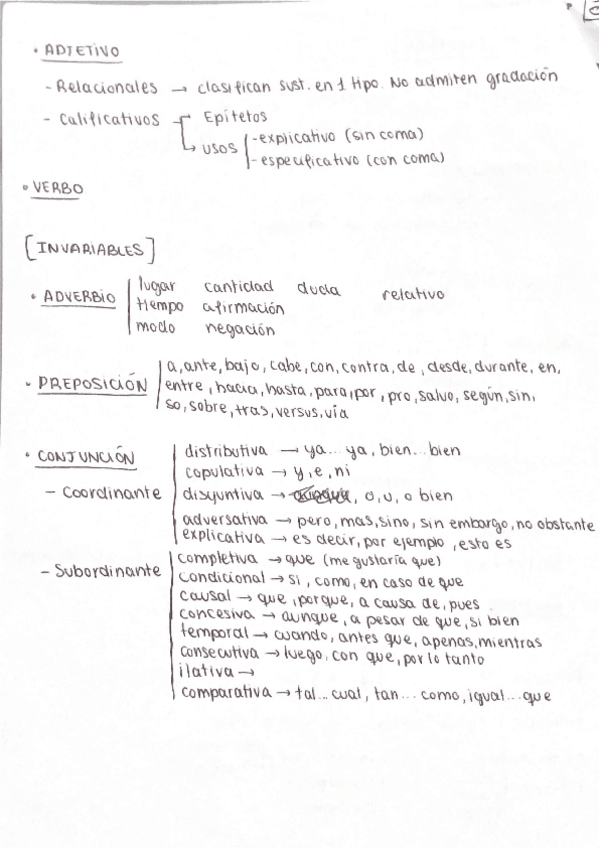 • ADJETIVO
- Relacionales → clasifican sust. en 1 tipo. No admiten gradación
- Calificativos → Epítetos
↳ usos - explicativo (sin coma)
- especificativo (con coma)
• VERBO
[INVARIABLES]
lugar cantidad duda relativo
• ADVERBIO tiempo afirmación
modo negación
a, ante, bajo, cabe, con, contra, de, desde, durante, en,
• PREPOSICIÓN entre, hacia, hasta, para, por, pro, salvo, según, sin,
so, sobre, tras, versus, vía
• CONJUNCIÓN distributiva → ya... ya, bien... bien
copulativa → y, e, ni
- Coordinante disyuntiva → , o, u, o bien
adversativa → pero, mas, sino, sin embargo, no obstante
explicativa → es decir, por ejemplo, esto es
- Subordinante completiva → que (me gustaría que)
condicional → si, como, en caso de que
causal → que, porque, a causa de, pues
concesiva → aunque, a pesar de que, si bien
temporal → cuando, antes que, apenas, mientras
consecutiva → luego, con que, por lo tanto
ilativa →
comparativa → tal... cual, tan... como, igual... que